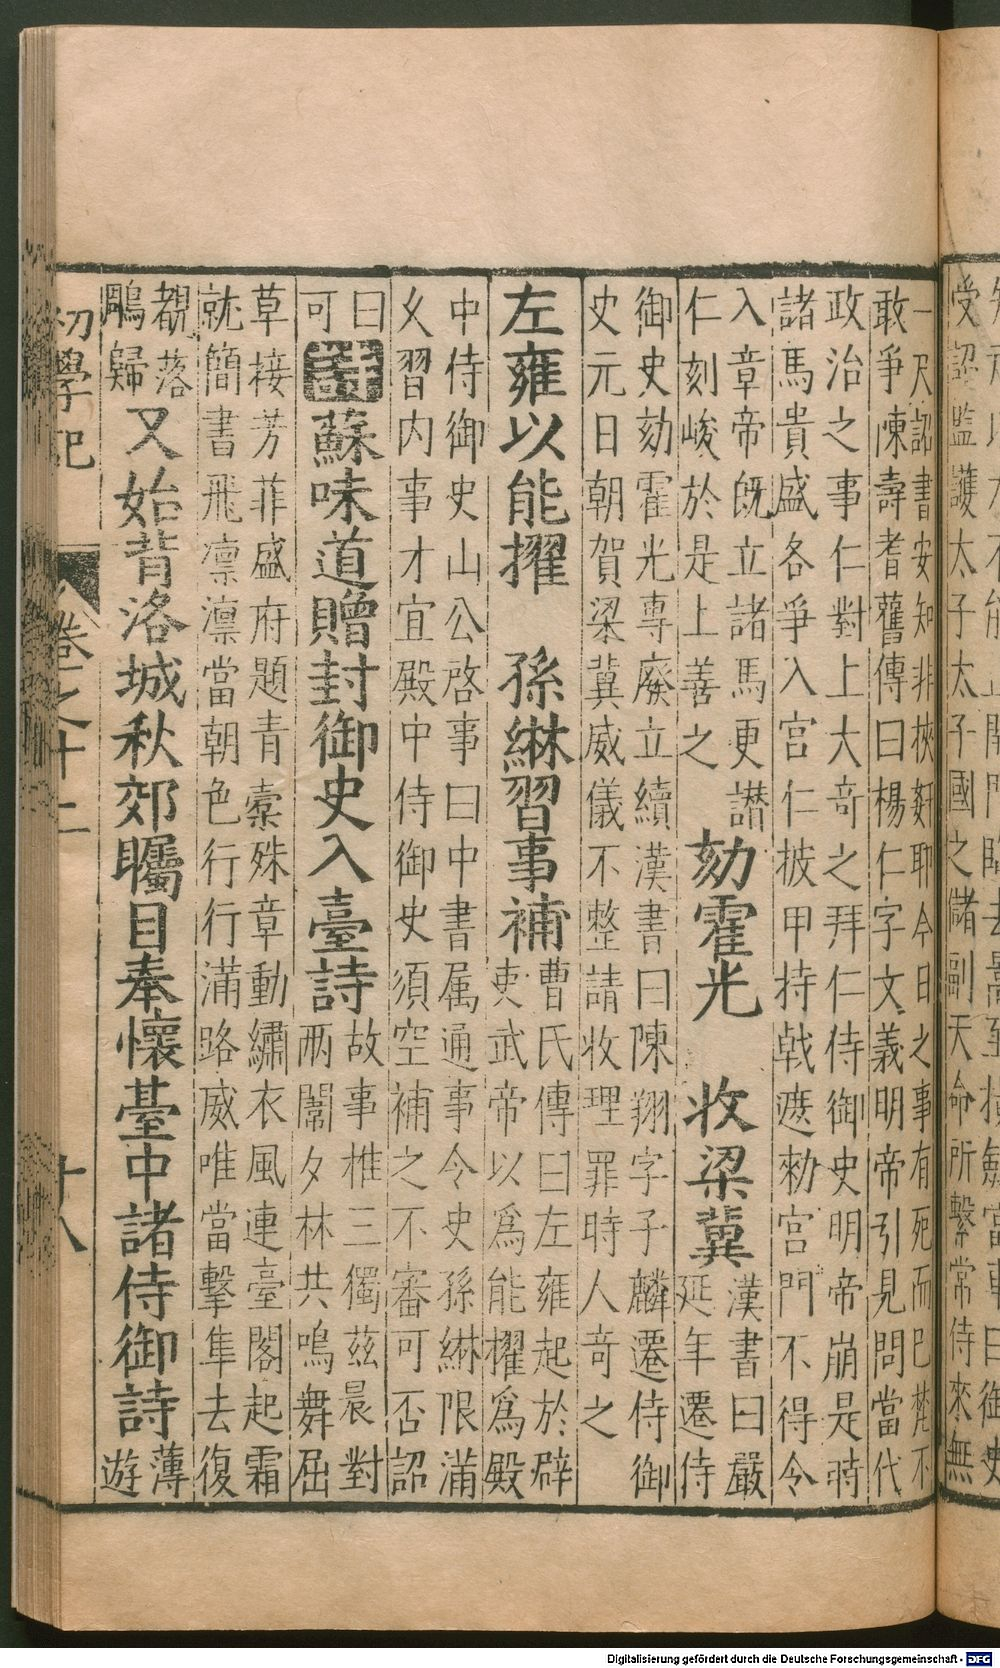 受詔監護太子太子國之儲副天命所繫常侍來無
一尺詔書安知非挾姧耶今日之事有死而已梵不
敢爭陳壽耆舊傳曰楊仁字文義明帝引見問當代
政治之事仁對上大奇之拜仁侍御史明帝崩是時
諸馬貴盛各爭入宮仁披甲持戟遮勑宮門不得令
入章帝旣立諸馬更譖
仁刻峻於是上善之
劾霍光 收梁冀
漢書曰嚴
延年遷侍
御史劾霍光專廢立續漢書曰陳翔字子麟遷侍御
史元日朝賀梁冀威儀不整請收理罪時人奇之
左雍以能擢 孫綝習事補
曹氏傳曰左雍起於辟
吏武帝以爲能擢爲殿
中侍御史山公啓事曰中書属通事令史孫綝限滿
久習内事才宜殿中侍御史須空補之不審可否詔
曰
可
詩
蘇味道贈封御史入臺詩
故事椎三獨茲晨對
兩闈夕林共鳴舞屈
草接芳菲盛府題青橐殊章動繡衣風連臺閣起霜
就簡書飛凛凛當朝色行行滿路威唯當擊隼去復
覩落
鵰歸
又始背洛城秋郊矚目奉懷臺中諸侍御詩
薄
遊
初學記
卷之十二
十八
Digitalisierung gefördert durch die Deutsche Forschungsgemeinschaft - DFG